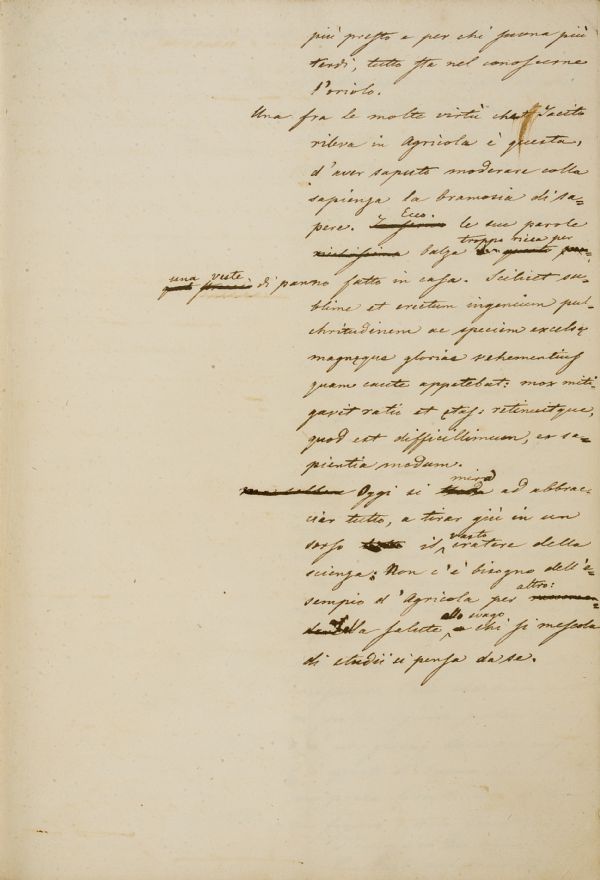 più presto e per chi suona più
tardi, tutto sta nel conoscerne
l'oriolo.
Una fra le molte virtù che Tacito
rileva in Agricola è questa,
d'aver saputo moderare colla
sapienza la bramosia di sa=
pere. Ecco le sue parole
troppo ricca per
ricchissima balza questo
una veste
di panno fatto in casa. Scilicet su-
blime et erectum ingenium pul-
chritudinem ac speciem excelsę
magnęque glorias vehementius
quam caute appetebat: mox miti-
gavit ratio et ętas: retinuitque,
quod est difficillimum, ex sa-
pientia modum.
mira
Oggi si ad abbrac-
ciar tutto, a tirar giù in un
vasto
sorso il cratere della
scienza: Non c'è bisogno dell'e-
altro:
sempio d'Agricola per
allo svago
la salute chi si mescola
di studii ci pensa da se.